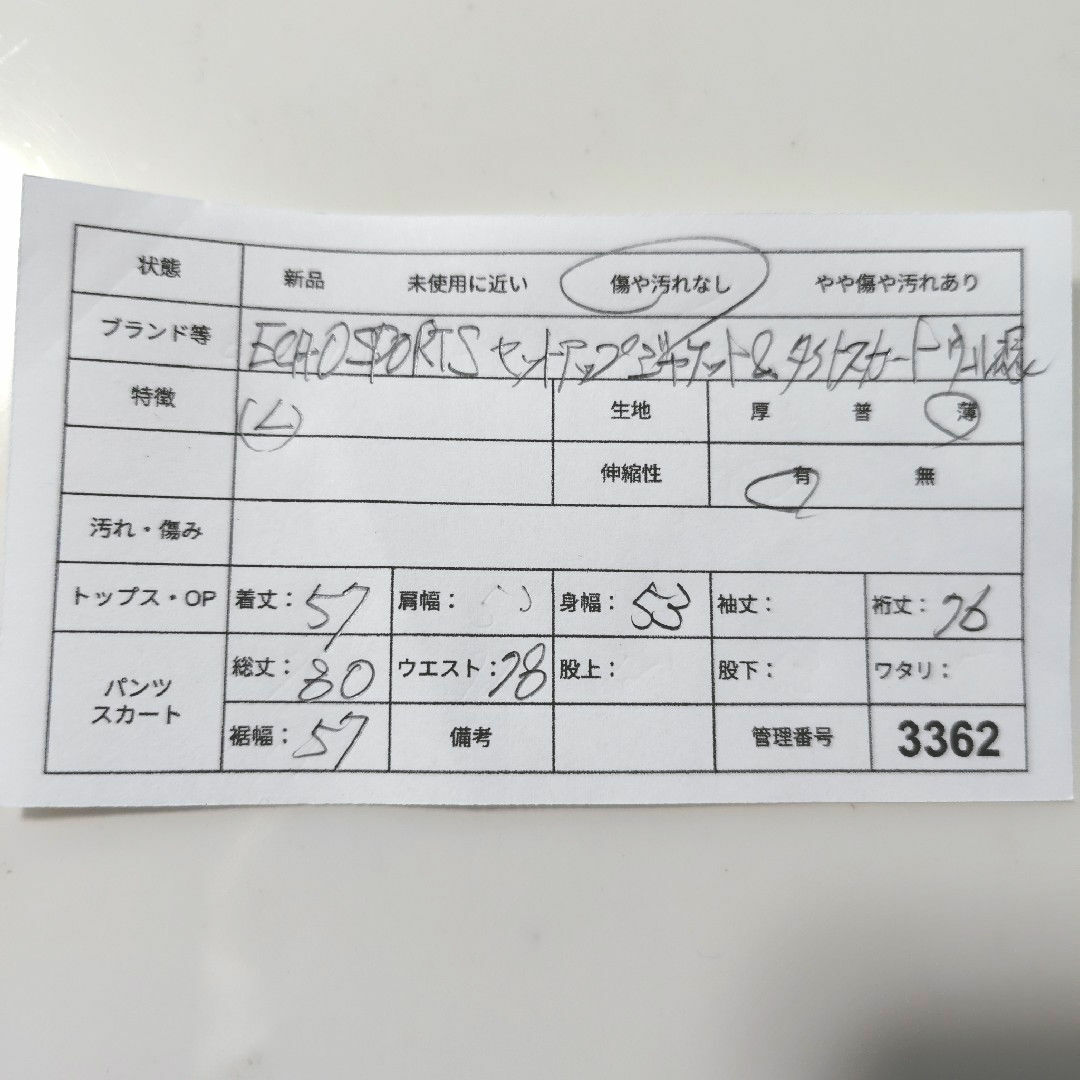 状態 新品 未使用に近い 傷や汚れなし やや傷や汚れあり
ブランド等 SPORTS セットアップジャケット&タイトスカート ウール
特徴 L 生地 厚 普 薄
伸縮性 有 無
汚れ・傷み
トップス・OP 着丈：57 肩幅： 身幅：53 袖丈： 裄丈：76
パンツ スカート 総丈：80 ウエスト：78 股上： 股下： ワタリ：
裾幅：57 備考 管理番号 3362